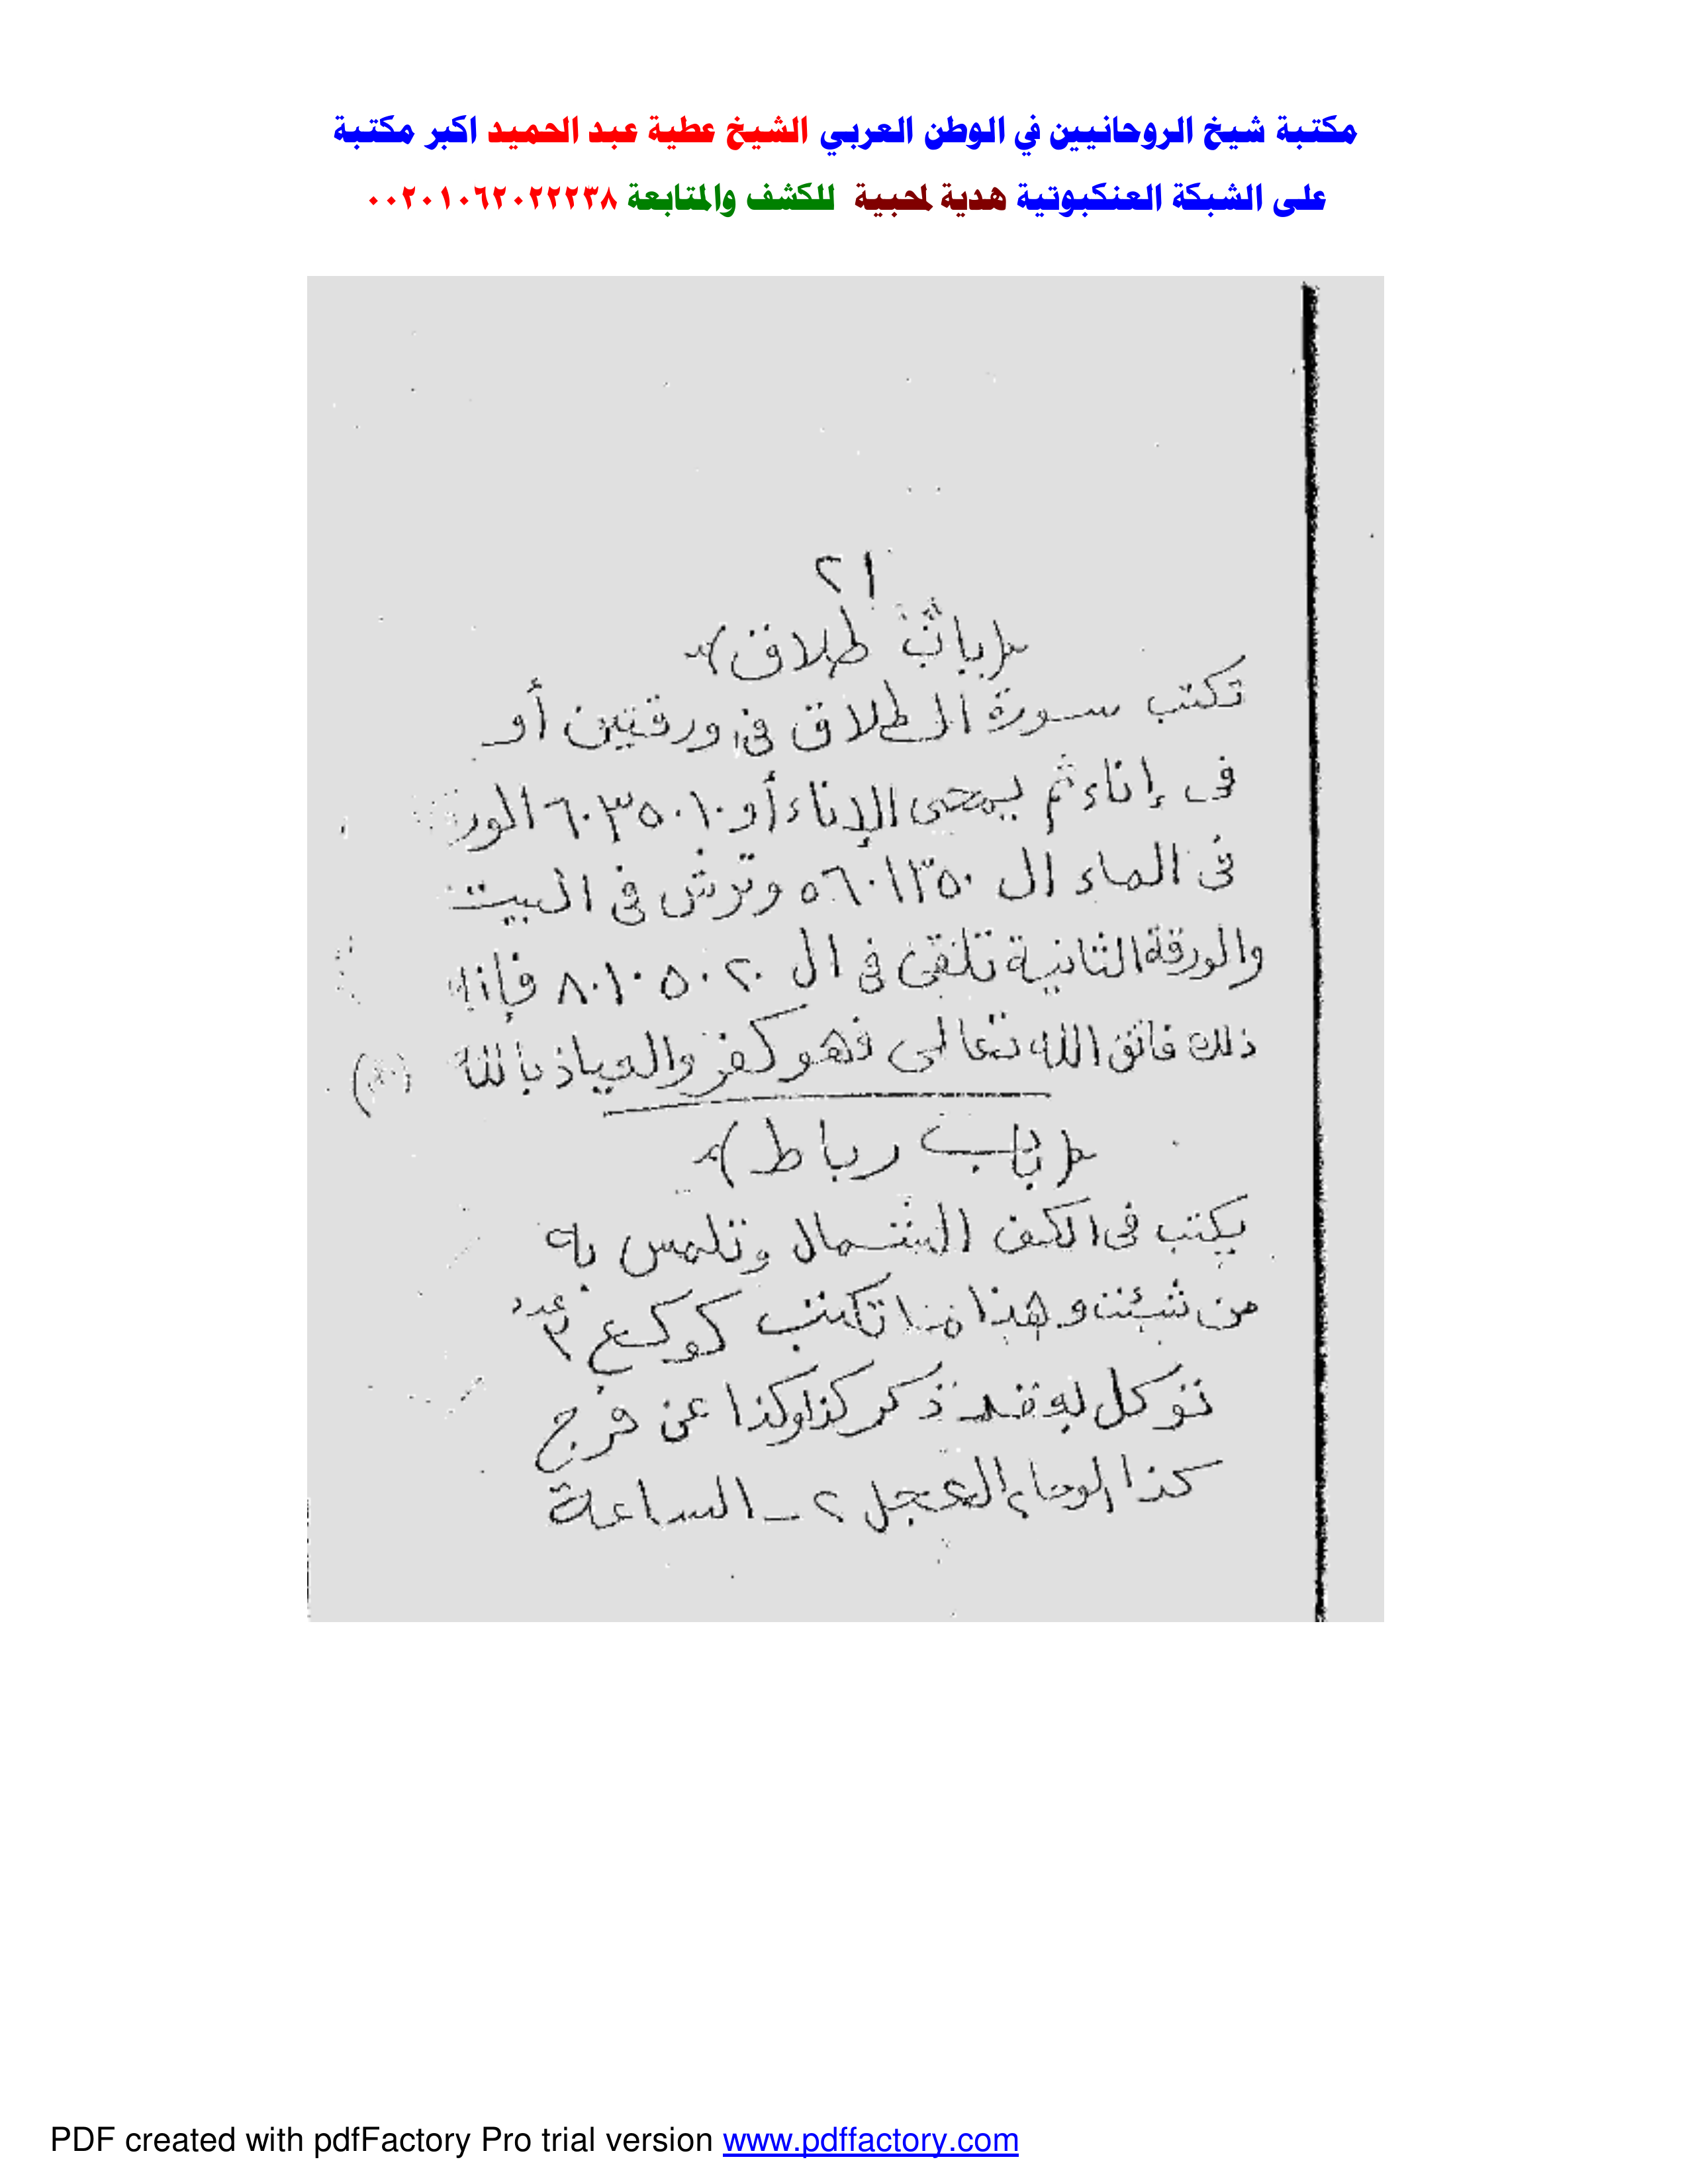 مكتبة شيخ الروحانيين في الوطن العربي الشيخ عطية عبد الحميد اكبر مكتبة
على الشبكة العنكبوتية هدية لمحبية للكشف والمتابعة ٠٠٢٠١٠٦٢٠٢٢٢٣٨
٢١
(باب طلاق)
تكتب سورة الطلاق فى ورقتين أو
فى إناء ثم يمحى الإناء أو ٦٠٣٥٠١٠ الور
فى الماء ال ٥٦٠١٣٥٠ وترش فى البيت
والورقة الثانية تلقى فى ال ٨٠١٠٥٠٢٠
ذلك فاتق الله تعالى فهو كفر والعياذ بالله
(باب رباط)
يكتب فى الكف الشمال وتلمس به
من شئت وهذا ما تكتب كوكع ٣ عدد
توكل ذكر كذا وكذا عن فرج
كذا الوحا ٢ العجل ٢ - الساعة
PDF created with pdfFactory Pro trial version www.pdffactory.com